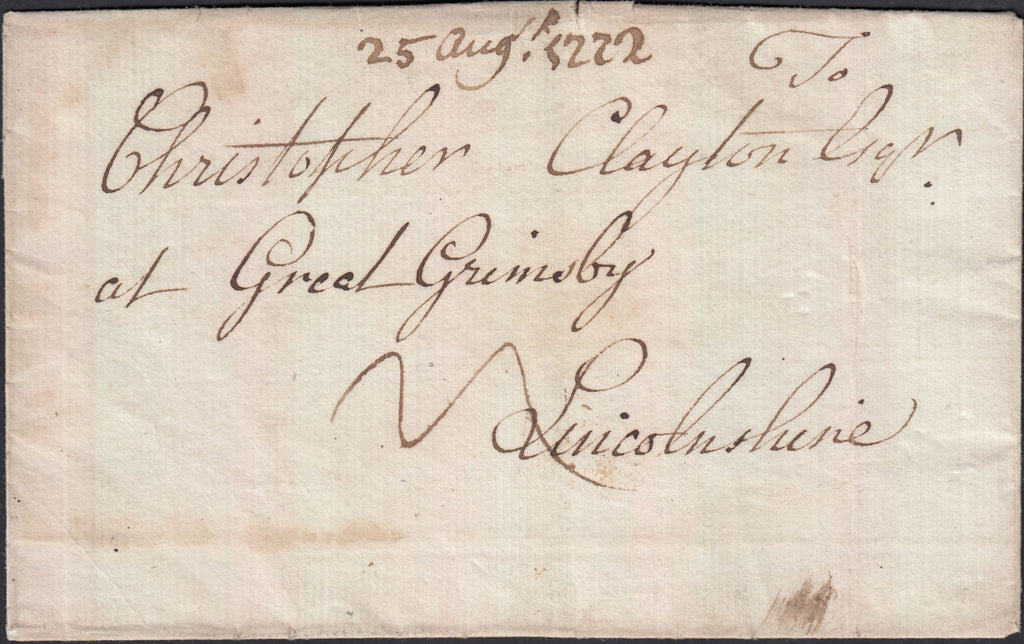 25 Augst. 1772
To
Christopher Clayton Esqr.
at Great Grimsby
Lincolnshire